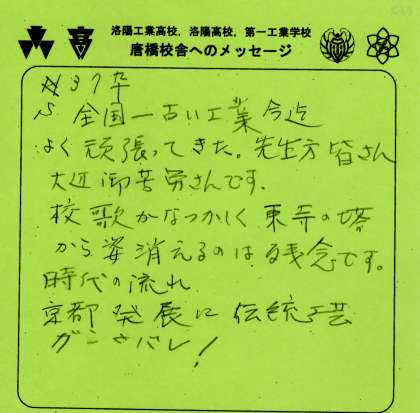 洛陽工業高校，洛陽高校，第一工業学校
唐橋校舎へのメッセージ
S37卆
全国一古い工業今迄
よく頑張ってきた。先生方皆さん
大辺御苦労さんです。
校歌がなつかしく東寺の塔
から姿消えるのは残念です。
時代の流れ
京都発展に伝統工芸
ガンバレ！